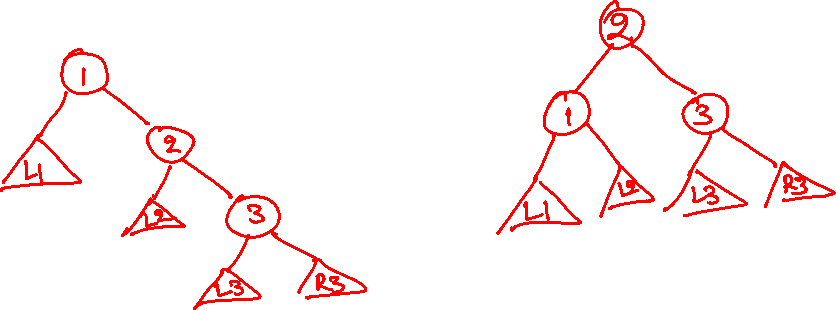 1
L1
2
L2
3
L3
R3
2
1
3
L1
L2
L3
R3